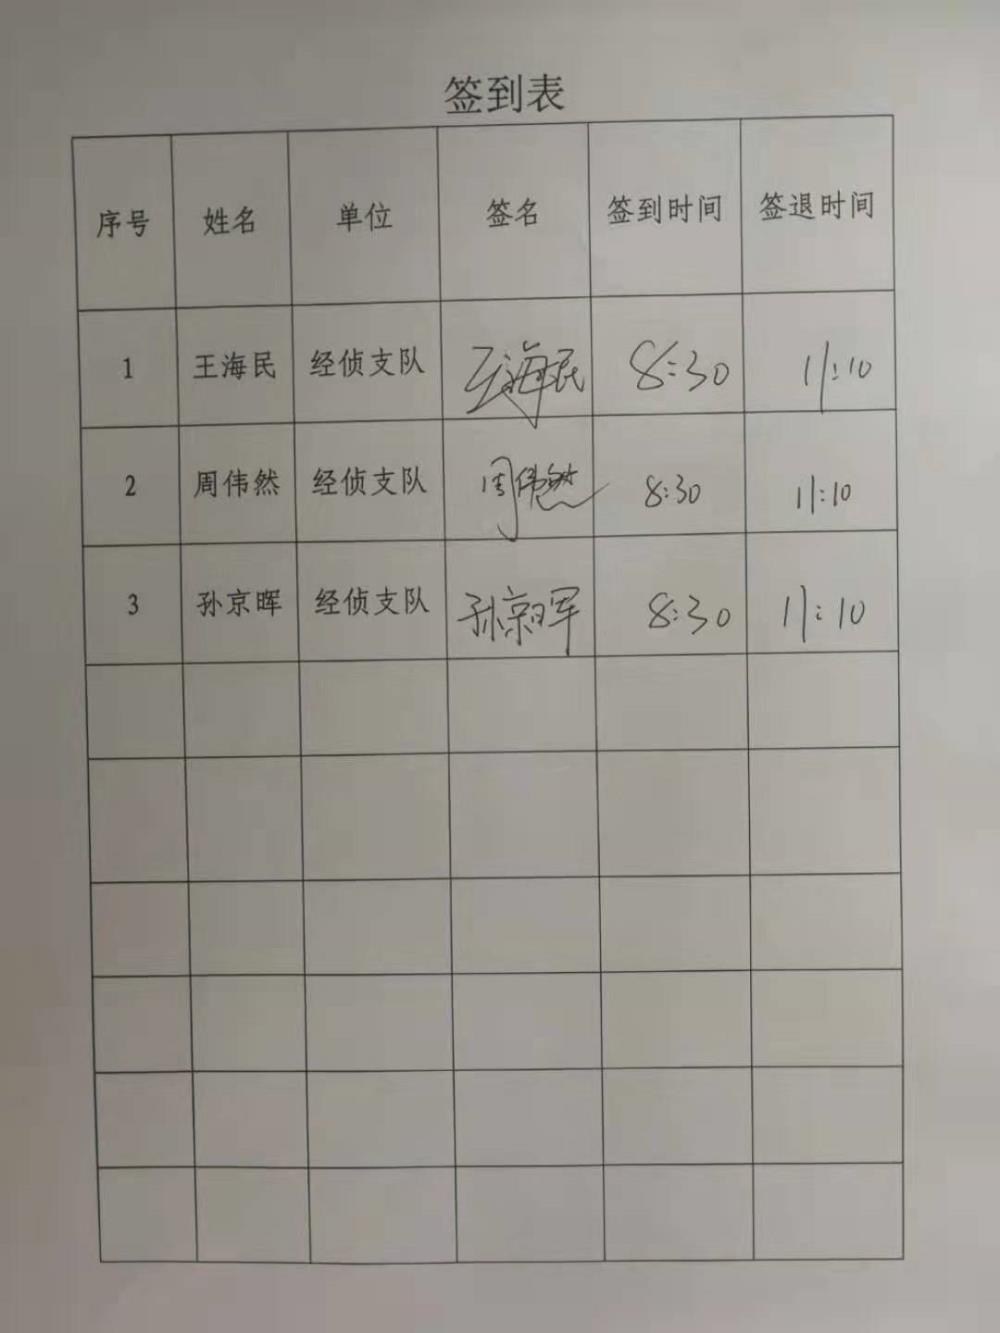 签到表
序号 姓名 单位 签名 签到时间 签退时间
1 王海民 经侦支队 王海民 8:30 11:10
2 周伟然 经侦支队 周伟然 8:30 11:10
3 孙京晖 经侦支队 孙京晖 8:30 11:10